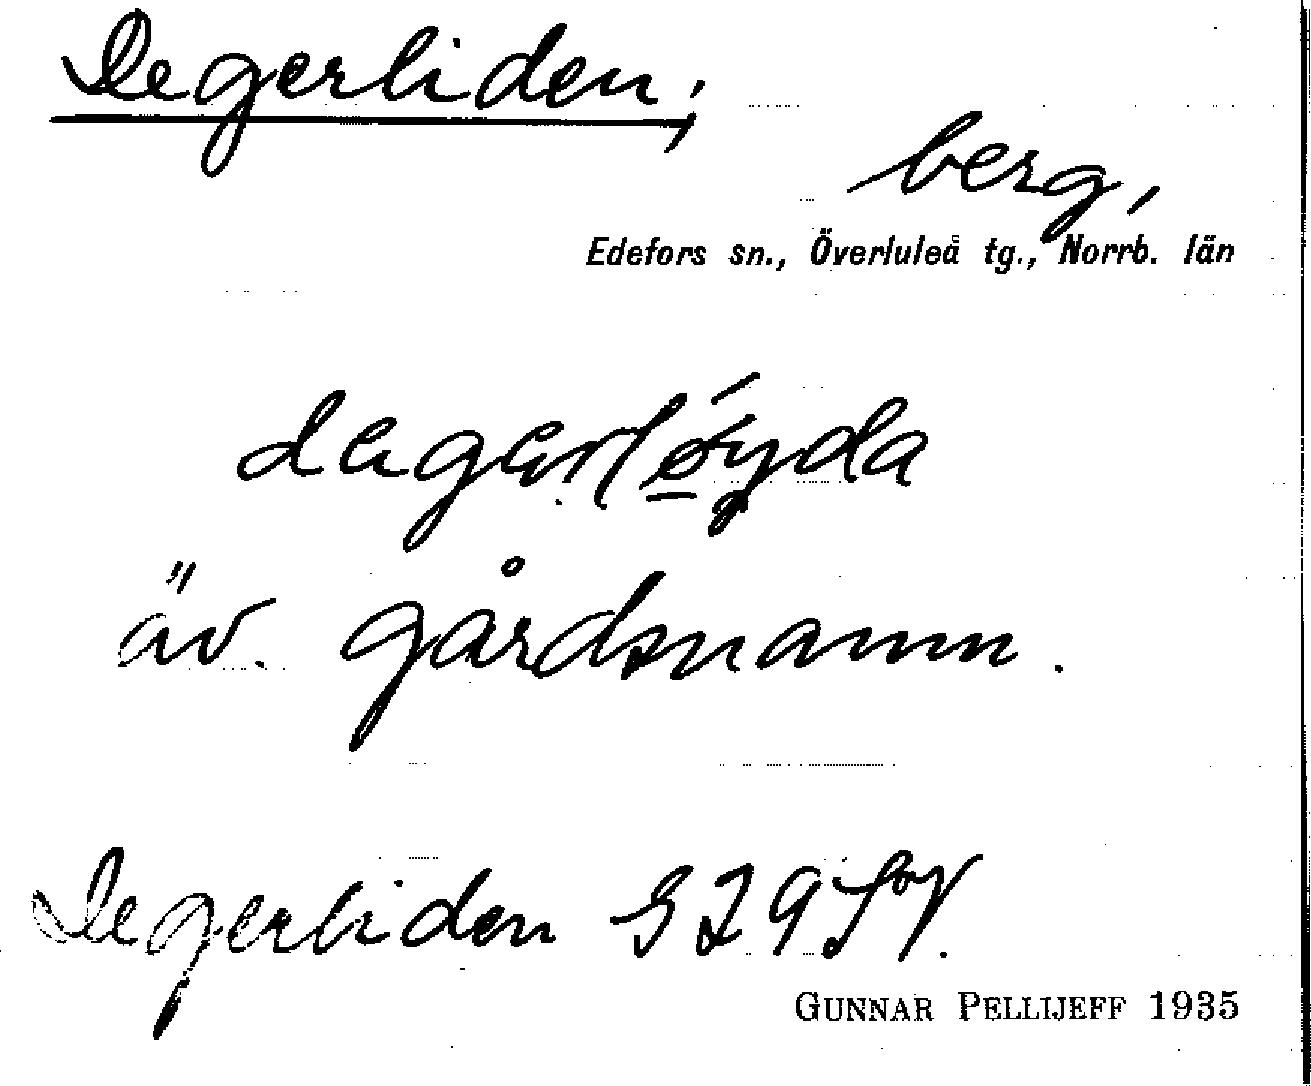 Degerliden,
berg,
Edefors sn., Överluleå tg., Norrb. län
äv. gårdsnamn.
Degerliden
GUNNAR PELLIJEFF 1935